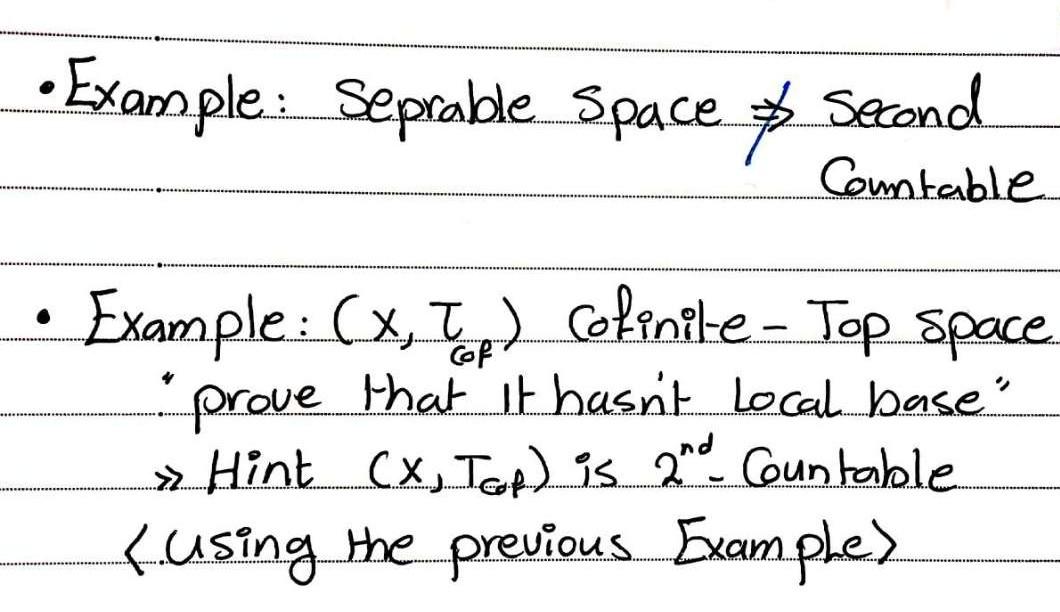 • Example: Seprable Space ⇏ Second
Countable
• Example: (X, τ_cof) Cofinite - Top space
"prove that it hasn't Local base"
» Hint (X, T_cof) is 2nd - Countable
<using the previous Example>